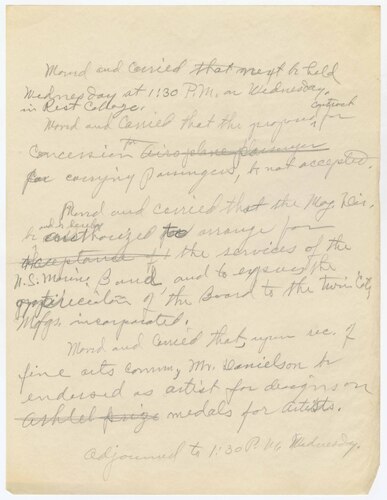 Moved and Carried that next be held
Wednesday at 1:30 P.M. on Wednesday,
in Rest Cottage.
Moved and Carried that the proposed contract for
Concession to Aeroplane Passenger
for carrying Passengers, be not accepted.
Moved and carried that the Mag. Dir.
be and is hereby authorized to arrange for
acceptance of the services of the
U.S. Marine Band, and to express the
appreciation of the Board to the Twin City
Mfgs. incorporated.
Moved and Carried that, upon rec. of
fine arts comm., Mr. Danielson be
endorsed as artist for designs on
medals for artists.
Adjourned to 1:30 P.M. Wednesday.